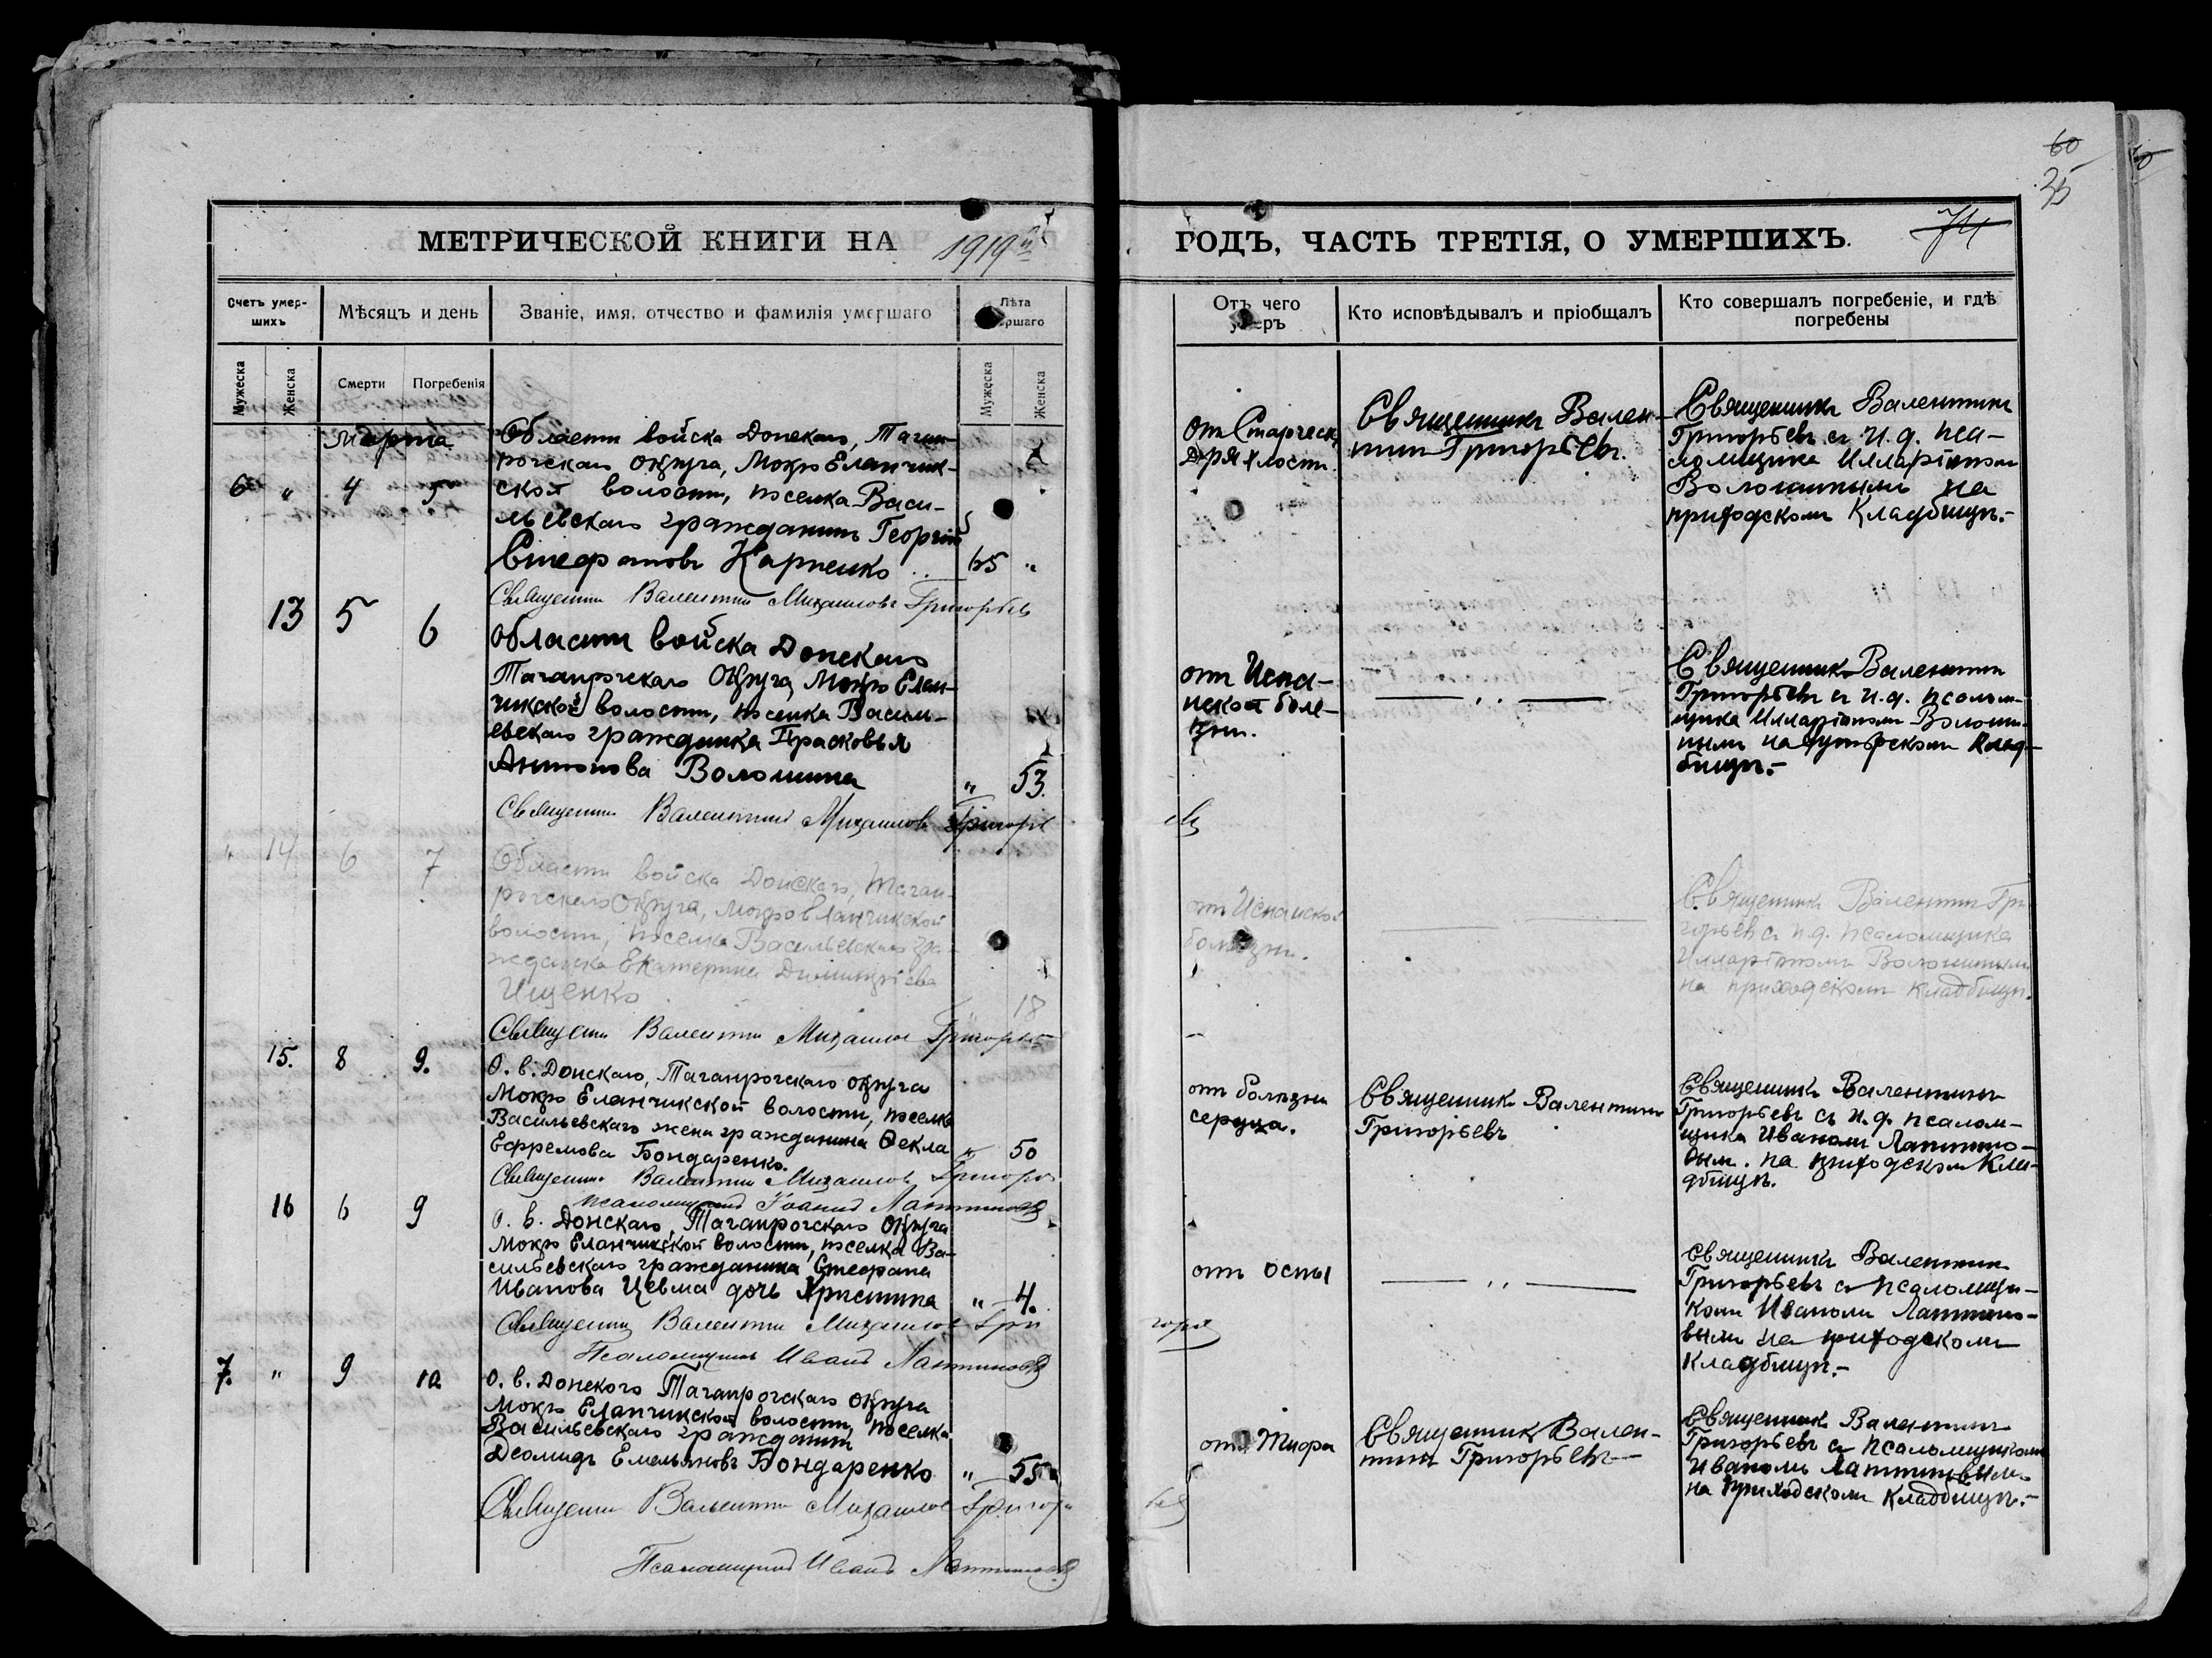 60
25
74
МЕТРИЧЕСКОЙ КНИГИ НА 1919й
ГОДЪ, ЧАСТЬ ТРЕТІЯ, О УМЕРШИХЪ.
Счетъ умер-
шихъ
Мѣсяцъ и день
Званіе, имя, отчество и фамилія умершаго
Лѣта
ршаго
Мужеска
Женска
Смерти
Погребенія
Мужеска
Женска
Отъ чего
умеръ
Кто исповѣдывалъ и пріобщалъ
Кто совершалъ погребеніе, и гдѣ
погребены
Марта
6 " 4 5
Области войска Донскаго, Таган-
рогскаго округа, Мокро Еланчик-
ской волости, поселка Васи-
льевскаго гражданинъ Георгій
Стефановъ Карпенко 65 "
Священник Валентин Михаилов Григорьев
от Старческ
Дряхлости.
Священникъ Вален-
тин Григорьевъ.
Священникъ Валентин
Григорьевъ съ и. д. пса-
ломщика Илларіоном
Волошиным на
приходском Кладбищѣ.-
13 5 6
Области войска Донскаго
Таганрогскаго Округа Мокро Елан-
чикской волости, поселка Василь-
евскаго гражданка Прасковья
Антонова Волошина " 53.
Священник Валентин Михаилов Григорь
от Испа-
нской боле-
зни.
— " —
Священник Валентин
Григорьевъ съ и. д. псалом-
щика Илларіоном Волоши-
ным на Клад-
бищѣ.-
" 14 6 7
Области войска Донскаго, Таган-
рогскаго Округа, Мокро Еланчикской
волости, поселка Васильевскаго гра-
жданка Екатерина Димитріева
Ищенко 18
Священник Валентин Михаилов Григорьев
от Испанской
болезни.
Священникъ Валентин Гри
горьевъ съ и. д. псаломщика
Илларіоном Волошиным
на приходском Кладбищѣ.
15. 8 9.
О. в. Донскаго, Таганрогскаго округа
Мокро Еланчикской волости, поселка
Васильевскаго жена гражданина Ѳекла
Ефремова Бондаренко. " 50
Священник Валентин Михаилов Григорь
псаломщик Іоанн Лаптинов
от болезни
сердца.
Священник Валентин
Григорьевъ
Священникъ Валентинъ
Григорьевъ съ и. д. псалом-
щика Иваном Лаптино-
вым. на приходском Кла-
дбищѣ.
16 6 9
О. в. Донскаго, Таганрогскаго Округа
Мокро Еланчикской волости, поселка Ва-
сильевскаго гражданина Стефана
Иванова Цевма дочь Христина " 4.
Священник Валентин Михаилов Гри
горьев
Псаломщик Иван Лаптинов
от оспы
— " —
Священникъ Валентин
Григорьевъ съ псаломщи-
ком Иваном Лаптино-
вым на приходском
Кладбищѣ.-
7. " 9 10
О. в. Донского Таганрогскаго округа
Мокро Еланчикской волости, поселка
Васильевскаго гражданин
Деомидъ Емельяновъ Бондаренко " 55
Священник Валентин Михаилов Григорь
Псаломщик Иван Лаптинов
от Тифа
Священник Вален-
тин Григорьевъ-
Священник Валентинъ
Григорьевъ съ псаломщиком
Иваном Лаптиновым
на приходском Кладбищѣ.-